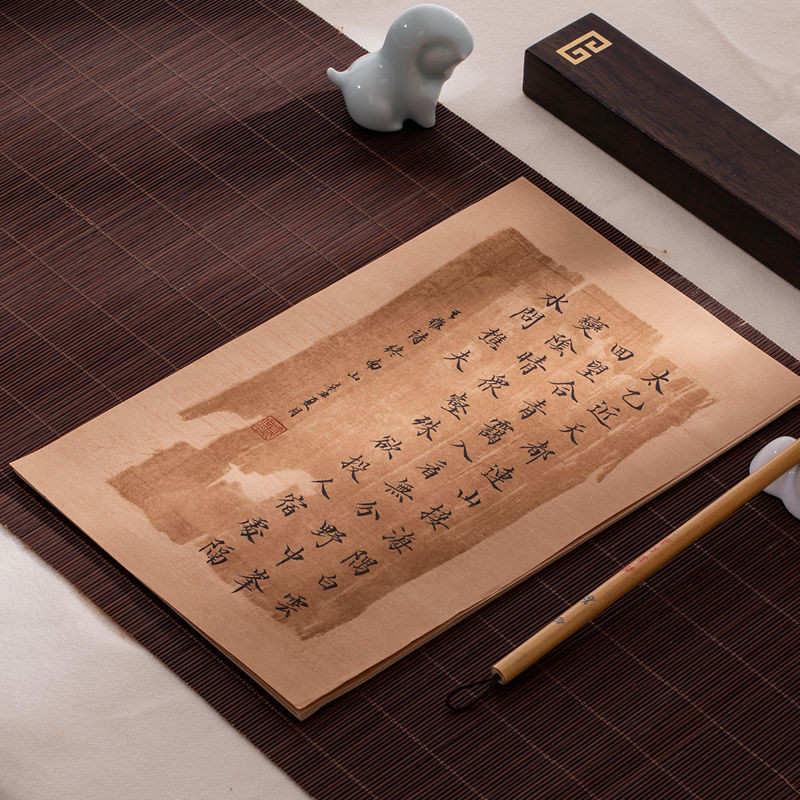 太乙近天都連山接海隅白雲
回望合青靄入看無分野中峯
變陰晴衆壑殊欲投人宿處隔
水問樵夫
王維詩終南山辛丑夏月